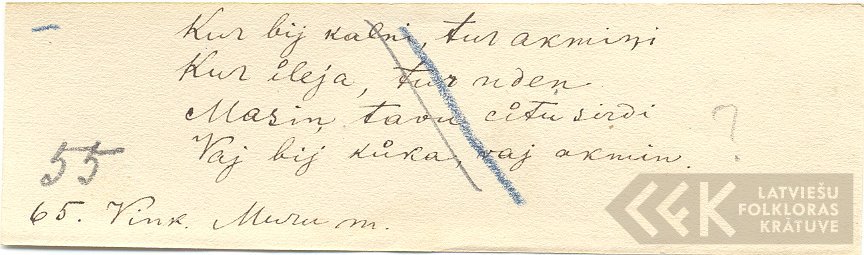 Kur bij kalni, tur akmiņi
Kur åleja, tur uden
Masiņ, tavu cåtu sirdi
Vaj bij kůka, vaj akmin. ?
55
65. Vink. Muru m.
LATVIEŠU
FOLKLORAS
KRĀTUVE